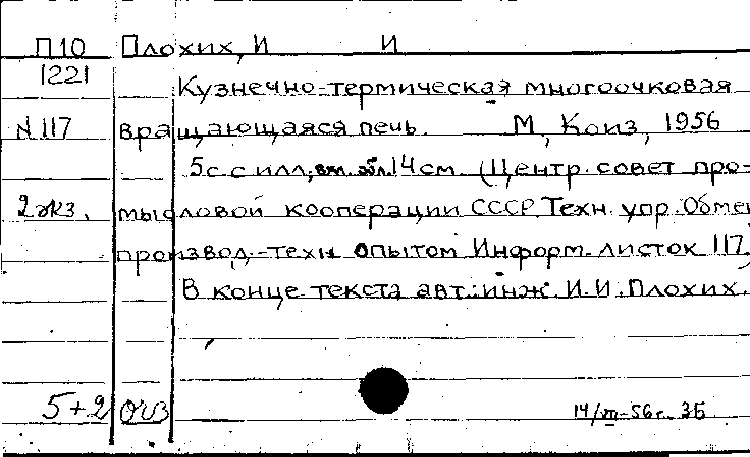 П10 Плохих, И И
1221
Кузнечно-термическая многоочковая
N 117 вращающаяся печь. М, Коиз, 1956
5с с илл, вкл. обл. 14 см. (Центр. совет про-
2 экз. мысловой кооперации СССР. Техн. упр. Обмен
производ.-техн опытом Информ. листок 117)
В конце текста авт.: инж. И. И. Плохих.
5+2
14/VII-56г. ЗБ